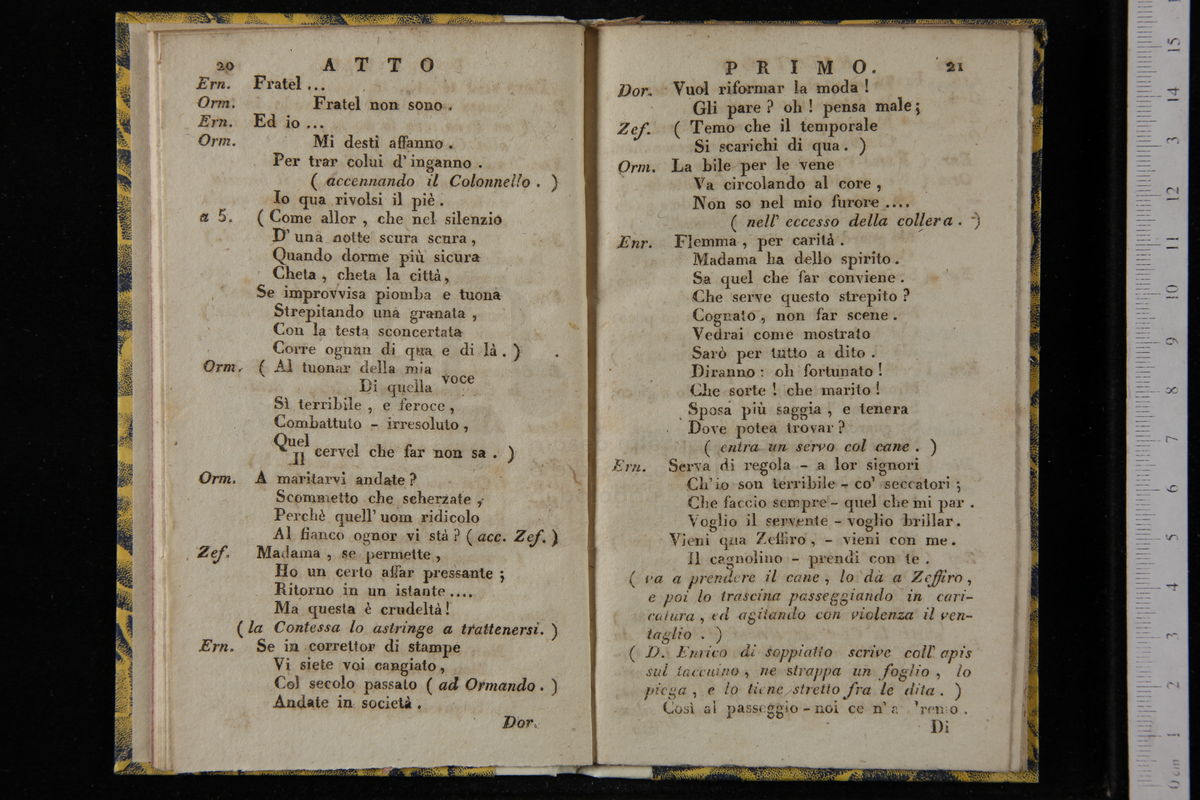 20 ATTO
Ern. Fratel ...
Orm. Fratel non sono .
Ern. Ed io ...
Orm. Mi desti affanno .
Per trar colui d' inganno .
( accennando il Colonnello . )
Io qua rivolsi il piè .
a 5. ( Come allor , che nel silenzio
D' una notte scura scura ,
Quando dorme più sicura
Cheta , cheta la città ,
Se improvvisa piomba e tuona
Strepitando una granata ,
Con la testa sconcertata
Corre ognun di qua e di là . )
Orm. ( Al tuonar della mia
Di quella voce
Sì terribile , e feroce ,
Combattuto - irresoluto ,
Quel
Il cervel che far non sa . )
Orm. A maritarvi andate ?
Scommetto che scherzate ,
Perchè quell' uom ridicolo
Al fianco ognor vi stà ? ( acc. Zef. )
Zef. Madama , se permette ,
Ho un certo affar pressante ;
Ritorno in un istante ....
Ma questa è crudeltà !
( la Contessa lo astringe a trattenersi. )
Ern. Se in correttor di stampe
Vi siete voi cangiato ,
Col secolo passato ( ad Ormando . )
Andate in società .
Dor.
PRIMO. 21
Dor. Vuol riformar la moda !
Gli pare ? oh ! pensa male ;
Zef. ( Temo che il temporale
Si scarichi di qua . )
Orm. La bile per le vene
Va circolando al core ,
Non so nel mio furore ....
( nell' eccesso della collera . )
Enr. Flemma , per carità .
Madama ha dello spirito .
Sa quel che far conviene .
Che serve questo strepito ?
Cognato , non far scene .
Vedrai come mostrato
Sarò per tutto a dito .
Diranno : oh fortunato !
Che sorte ! che marito !
Sposa più saggia , e tenera
Dove potea trovar ?
( entra un servo col cane . )
Ern. Serva di regola - a lor signori
Ch' io son terribile - co' seccatori ;
Che faccio sempre - quel che mi par .
Voglio il servente - voglio brillar .
Vieni qua Zeffiro , - vieni con me .
Il cagnolino - prendi con te .
( va a prendere il cane , lo dà a Zeffiro ,
e poi lo trascina passeggiando in cari-
catura , ed agitando con violenza il ven-
taglio . )
( D. Enrico di soppiatto scrive coll' apis
sul taccuino , ne strappa un foglio , lo
piega , e lo tiene stretto fra le dita . )
Così al passeggio - noi ce n'
Di